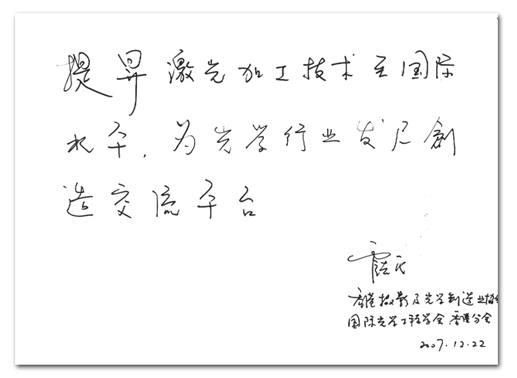 提昇激光加工技术至国际
水平，为光学行业发展創
造交流平台
香港摄影及光学制造业协会
国际光学工程学会 香港分会
2007.12.22